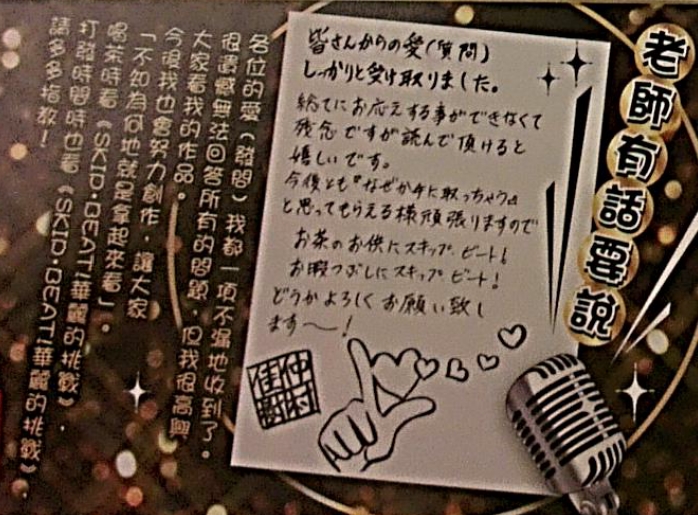 老師有話要說
皆さんからの愛(質問)
しっかりと受け取りました。
総てにお応えする事ができなくて
残念ですが読んで頂けると
嬉しいです。
今後とも『なぜか手に取っちゃう』
と思ってもらえる様頑張りますので
お茶のお供にスキップ・ビート!
お暇つぶしにスキップ・ビート!
どうかよろしくお願い致し
ます〜!
仲村佳樹
各位的愛(發問)我都一項不漏地收到了。
很遺憾無法回答所有的問題,但我很高興
大家看我的作品。
今後我也會努力創作,讓大家
「不知為何地就是拿起來看」。
喝茶時看《SKIP・BEAT!華麗的挑戰》,
打發時間時也看《SKIP・BEAT!華麗的挑戰》,
請多多指教!